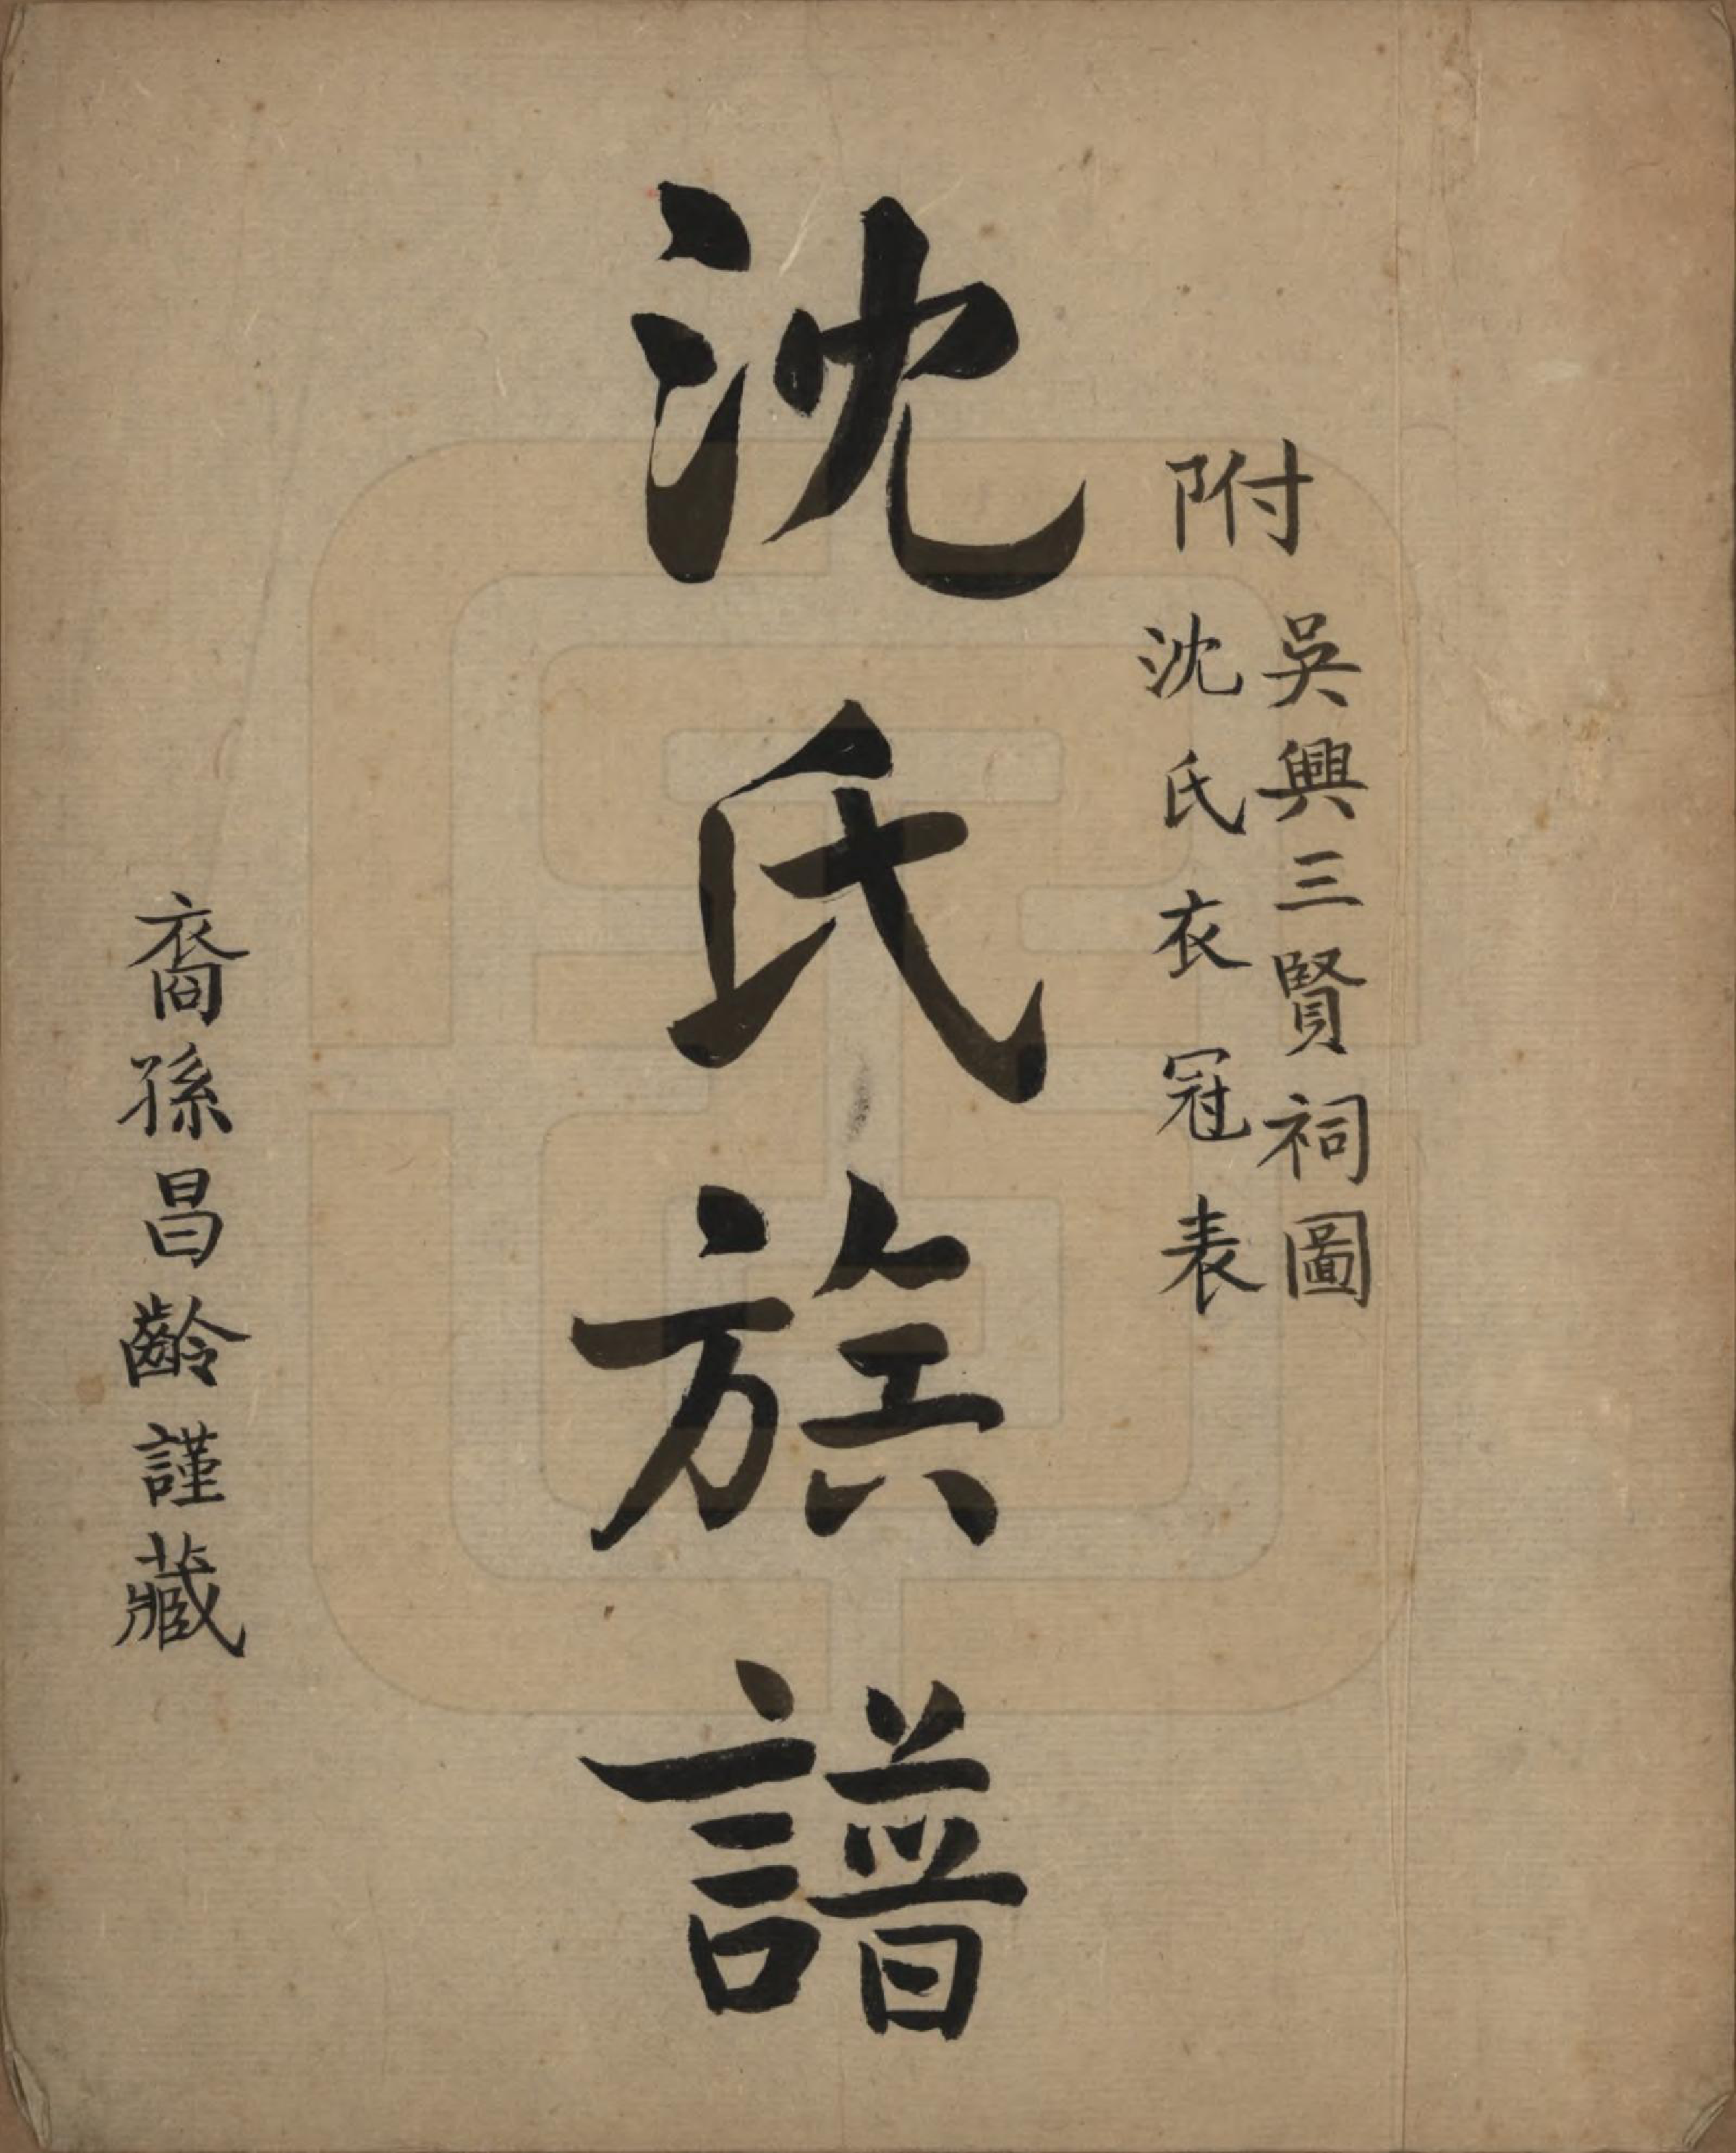 附
吳興三賢祠圖
沈氏衣冠表
沈氏族譜
裔孫昌齡謹藏